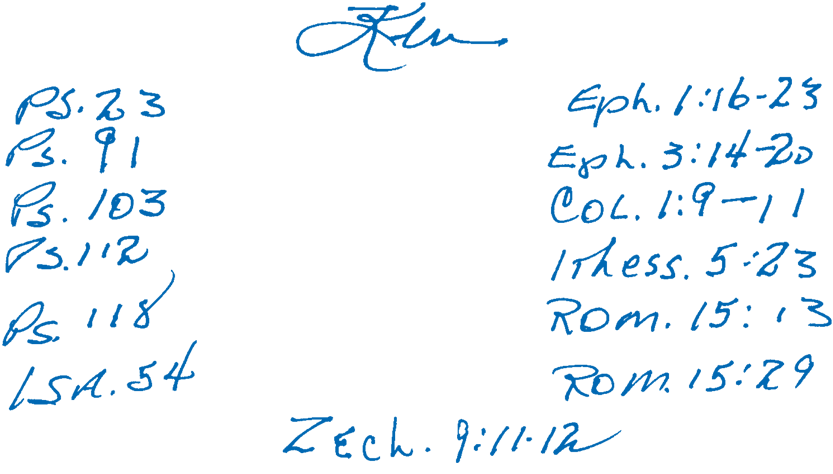 Ken
Ps. 23
Ps. 91
Ps. 103
Ps. 112
Ps. 118
ISA. 54
Eph. 1:16-23
Eph. 3:14-20
COL. 1:9-11
1 Thess. 5:23
ROM. 15:13
ROM. 15:29
Zech. 9:11-12